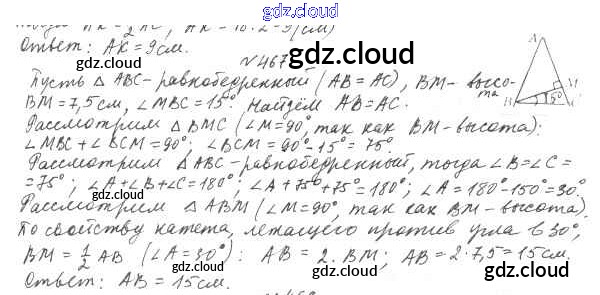 gdz.cloud
AK = 1/2 AC, AK = 18:2 = 9 (см)
Ответ: AK = 9 см.
N 467
gdz.cloud
Пусть △ ABC - равнобедренный (AB = AC), BM - высо-
та
BM = 7,5 см, ∠MBC = 15°. Найдём AB = AC.
A
M
B
15°
Рассмотрим △ BMC (∠M = 90°, так как BM - высота):
gdz.cloud gdz.cloud
∠MBC + ∠BCM = 90°; ∠BCM = 90° - 15° = 75°.
Рассмотрим △ ABC - равнобедренный, тогда ∠B = ∠C =
= 75°; ∠A + ∠B + ∠C = 180°; ∠A + 75° + 75° = 180°; ∠A = 180° - 150° = 30°.
gdz.cloud gdz.cloud
Рассмотрим △ ABM (∠M = 90°, так как BM - высота).
По свойству катета, лежащего против угла в 30°,
BM = 1/2 AB (∠A = 30°): AB = 2 · BM; AB = 2 · 7,5 = 15 см.
gdz.cloud gdz.cloud
Ответ: AB = 15 см.